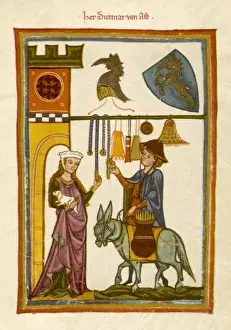 Her Dietmar von Ast.